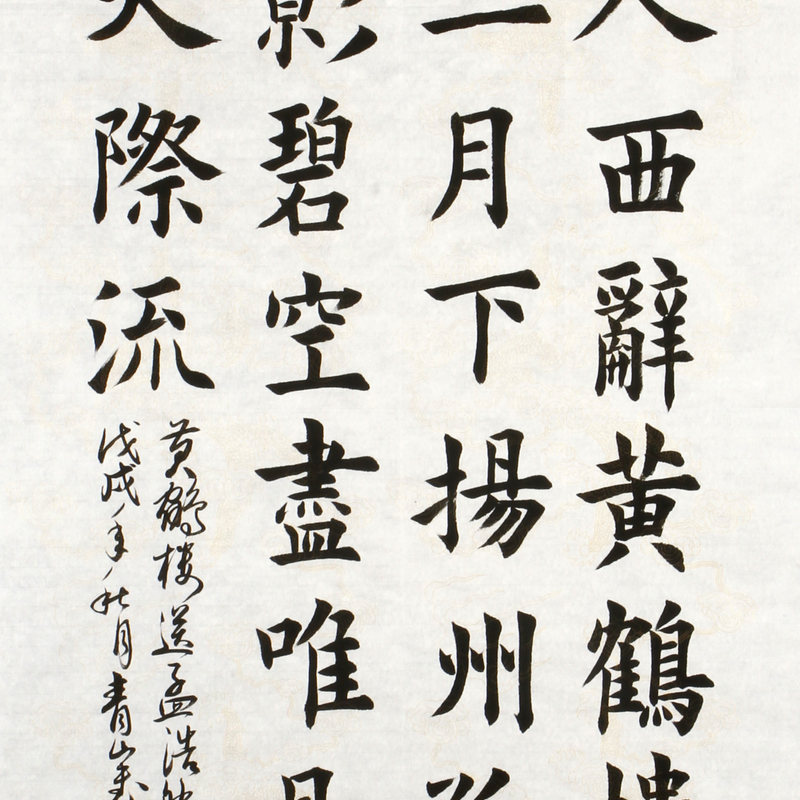 人西辭黃鶴樓
三月下揚州
影碧空盡唯見
天際流
黄鶴楼送孟浩然
戊戌年秋月青山